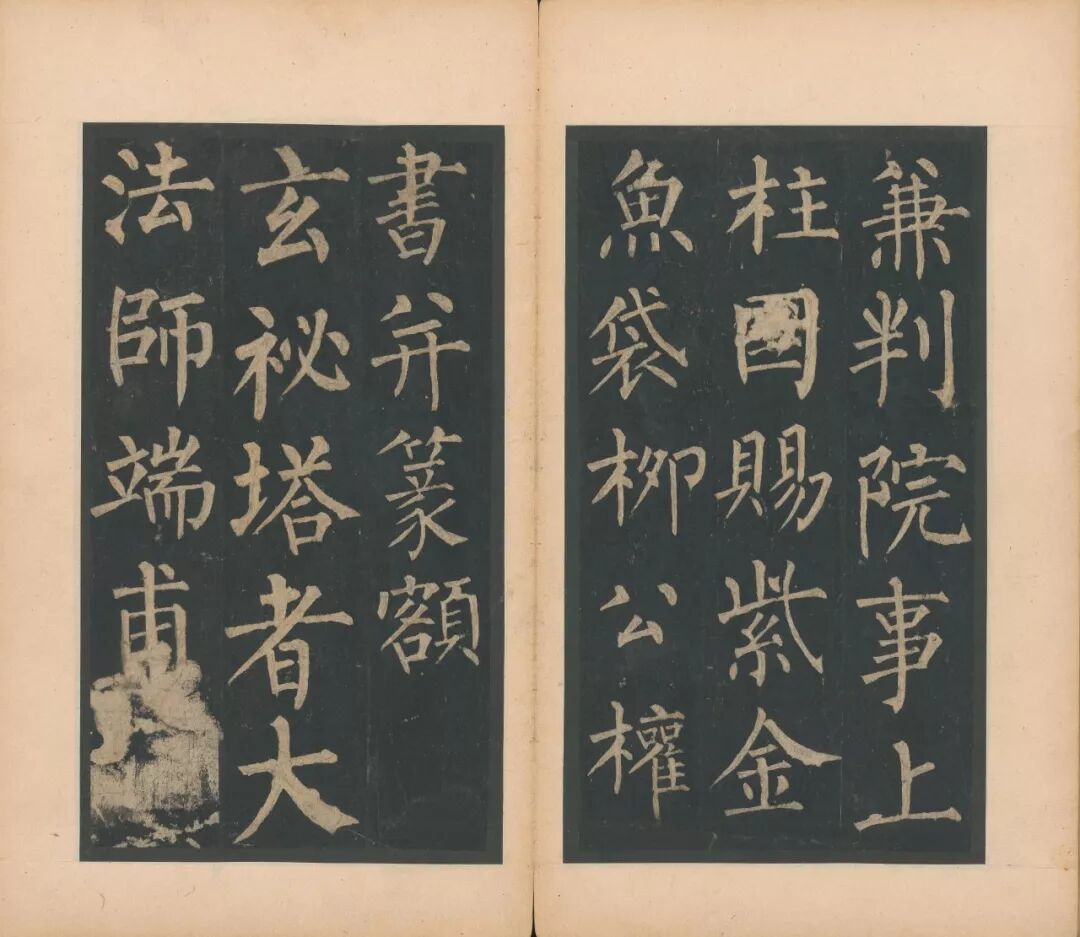 兼判院事上
柱國賜紫金
魚袋柳公權
書并篆額
玄祕塔者大
法師端甫